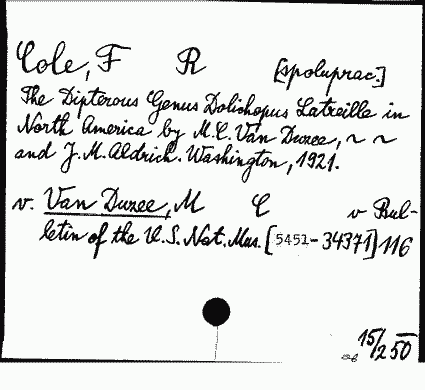 Cole, F R [spoluprac.]
The Dipterous Genus Dolichopus Latreille in
North America by M.C. Van Duzee, ~ ~
and J.M. Aldrich. Washington, 1921.
v. Van Duzee, M C v Bul-
letin of the U.S. Nat. Mus. [5451-34371] 116
15/250